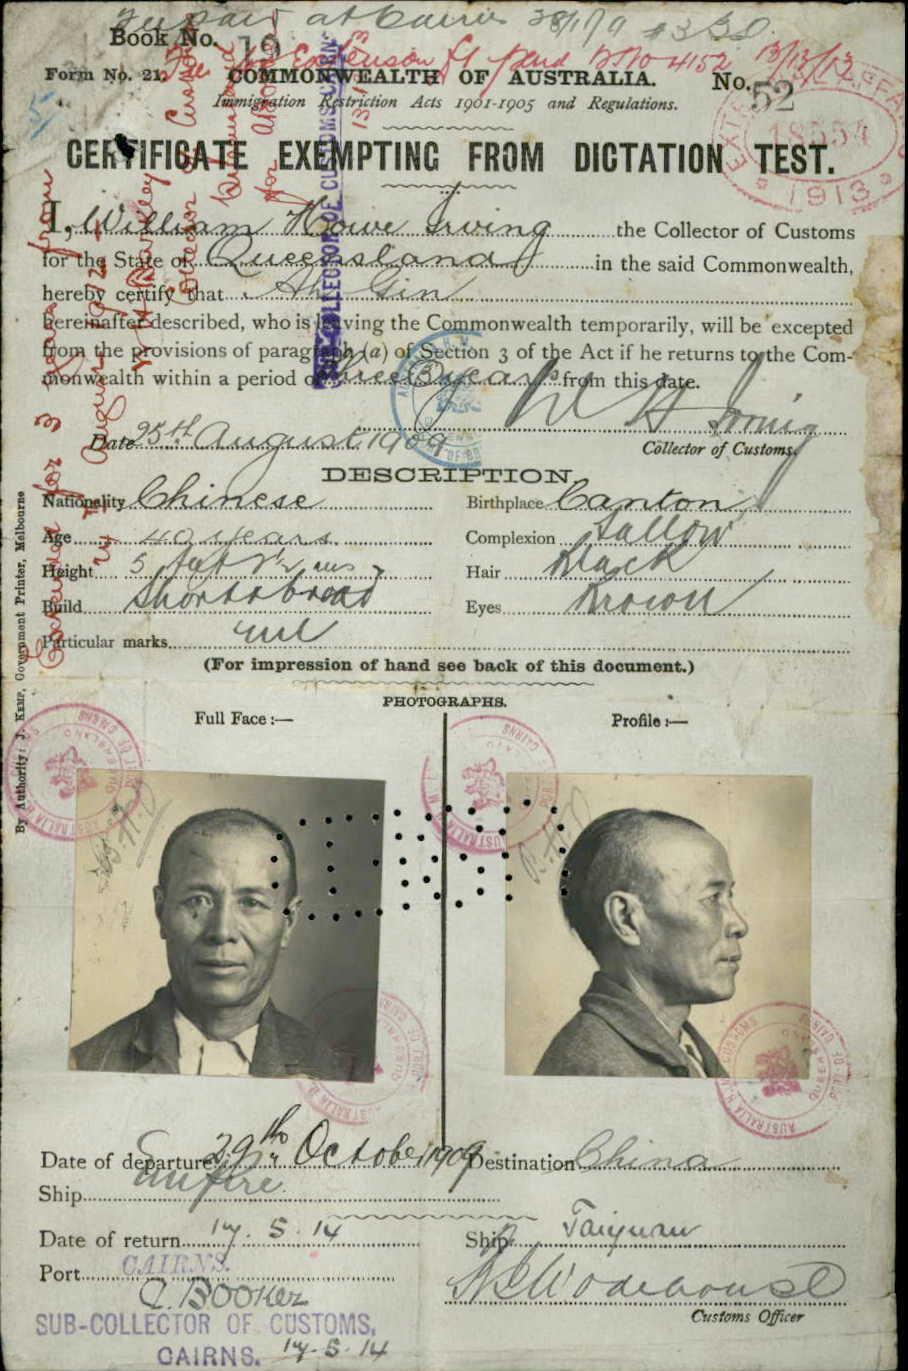 Repaid at Cairns
Book No. 19
Extension fee paid 4152 13/12/13
Form No. 21.
COMMONWEALTH OF AUSTRALIA.
No. 52
Immigration Restriction Acts 1901-1905 and Regulations.
CERTIFICATE EXEMPTING FROM DICTATION TEST.
EXTERNAL AFFAIRS
1913
I, William Howe Irving the Collector of Customs
for the State of Queensland in the said Commonwealth,
hereby certify that Ah Gin
hereinafter described, who is leaving the Commonwealth temporarily, will be excepted
from the provisions of paragraph (a) of Section 3 of the Act if he returns to the Com-
monwealth within a period of three (3) years from this date.
W H Irving
Date 25th August 1909
Collector of Customs.
SUB-COLLECTOR OF CUSTOMS, CAIRNS
Extended for 3 years from
24 August 1912
Collector of Customs
DESCRIPTION.
Nationality Chinese
Birthplace Canton
Age 40 years
Complexion Sallow
Height 5 feet ins
Hair Black
Build Short & broad
Eyes Brown
Particular marks nil
(For impression of hand see back of this document.)
By Authority: J. KEMP, Government Printer, Melbourne
PHOTOGRAPHS.
Full Face:—
Profile:—
Date of departure 29th October 1909
Destination China
Ship Empire
Date of return 17.5.14
Ship Taiyuan
Port CAIRNS.
C. Booker
SUB-COLLECTOR OF CUSTOMS,
CAIRNS. 17-5-14
Customs Officer